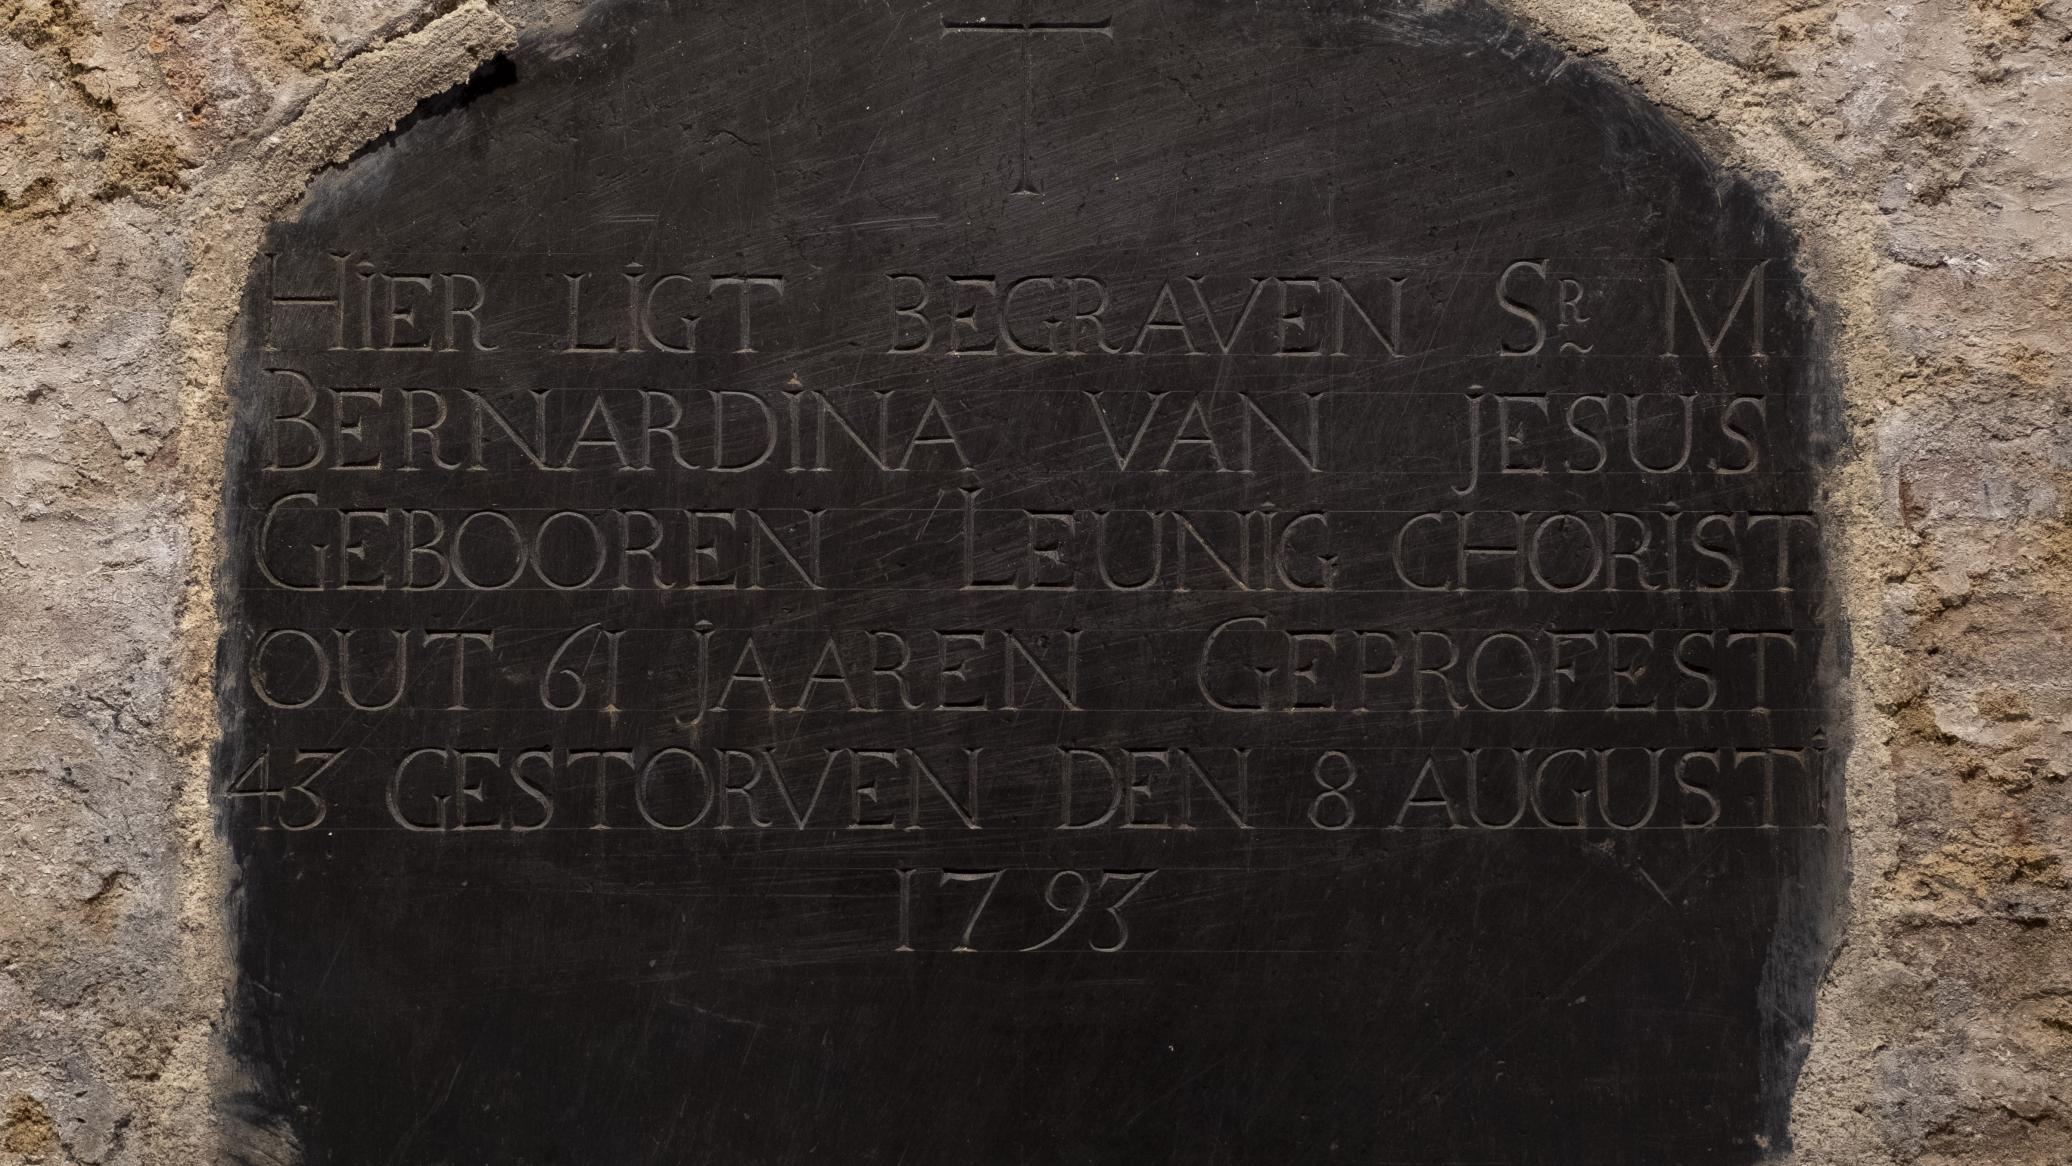 HiER LiGT BEGRAVEN SR M
BERNARDiNA VAN jESUS
GEBOOREN LEUNiG CHORiST
OUT 61 jAAREN GEPROFEST
43 GESTORVEN DEN 8 AUGUSTi
1793